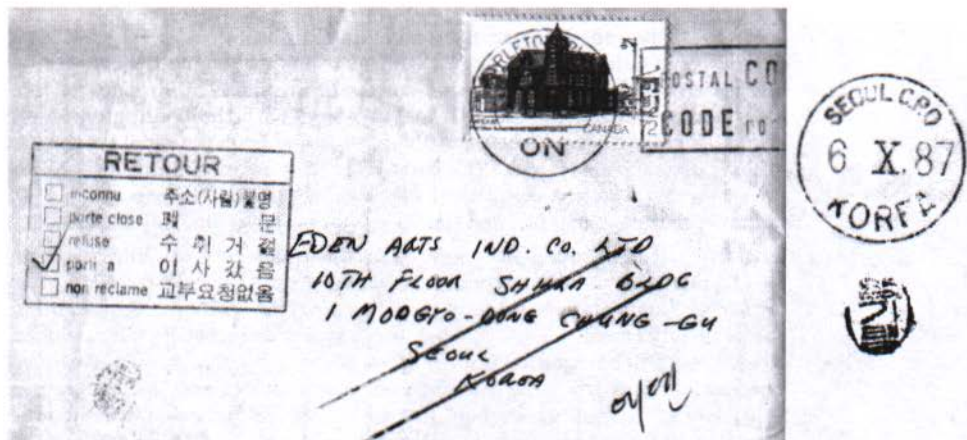 CANADA
ON
POSTAL CO
CODE
SEOUL C.P.O
6 X. 87
KOREA
RETOUR
inconnu 주소(사람)불명
porte close 폐 문
refuse 수 취 거 절
parti a 이 사 갔 음
non reclame 교부요청없음
EDEN ARTS IND. CO. LTD
10TH FLOOR BLDG
1 MOOGYO-DONG CHUNG-GU
SEOUL
KOREA